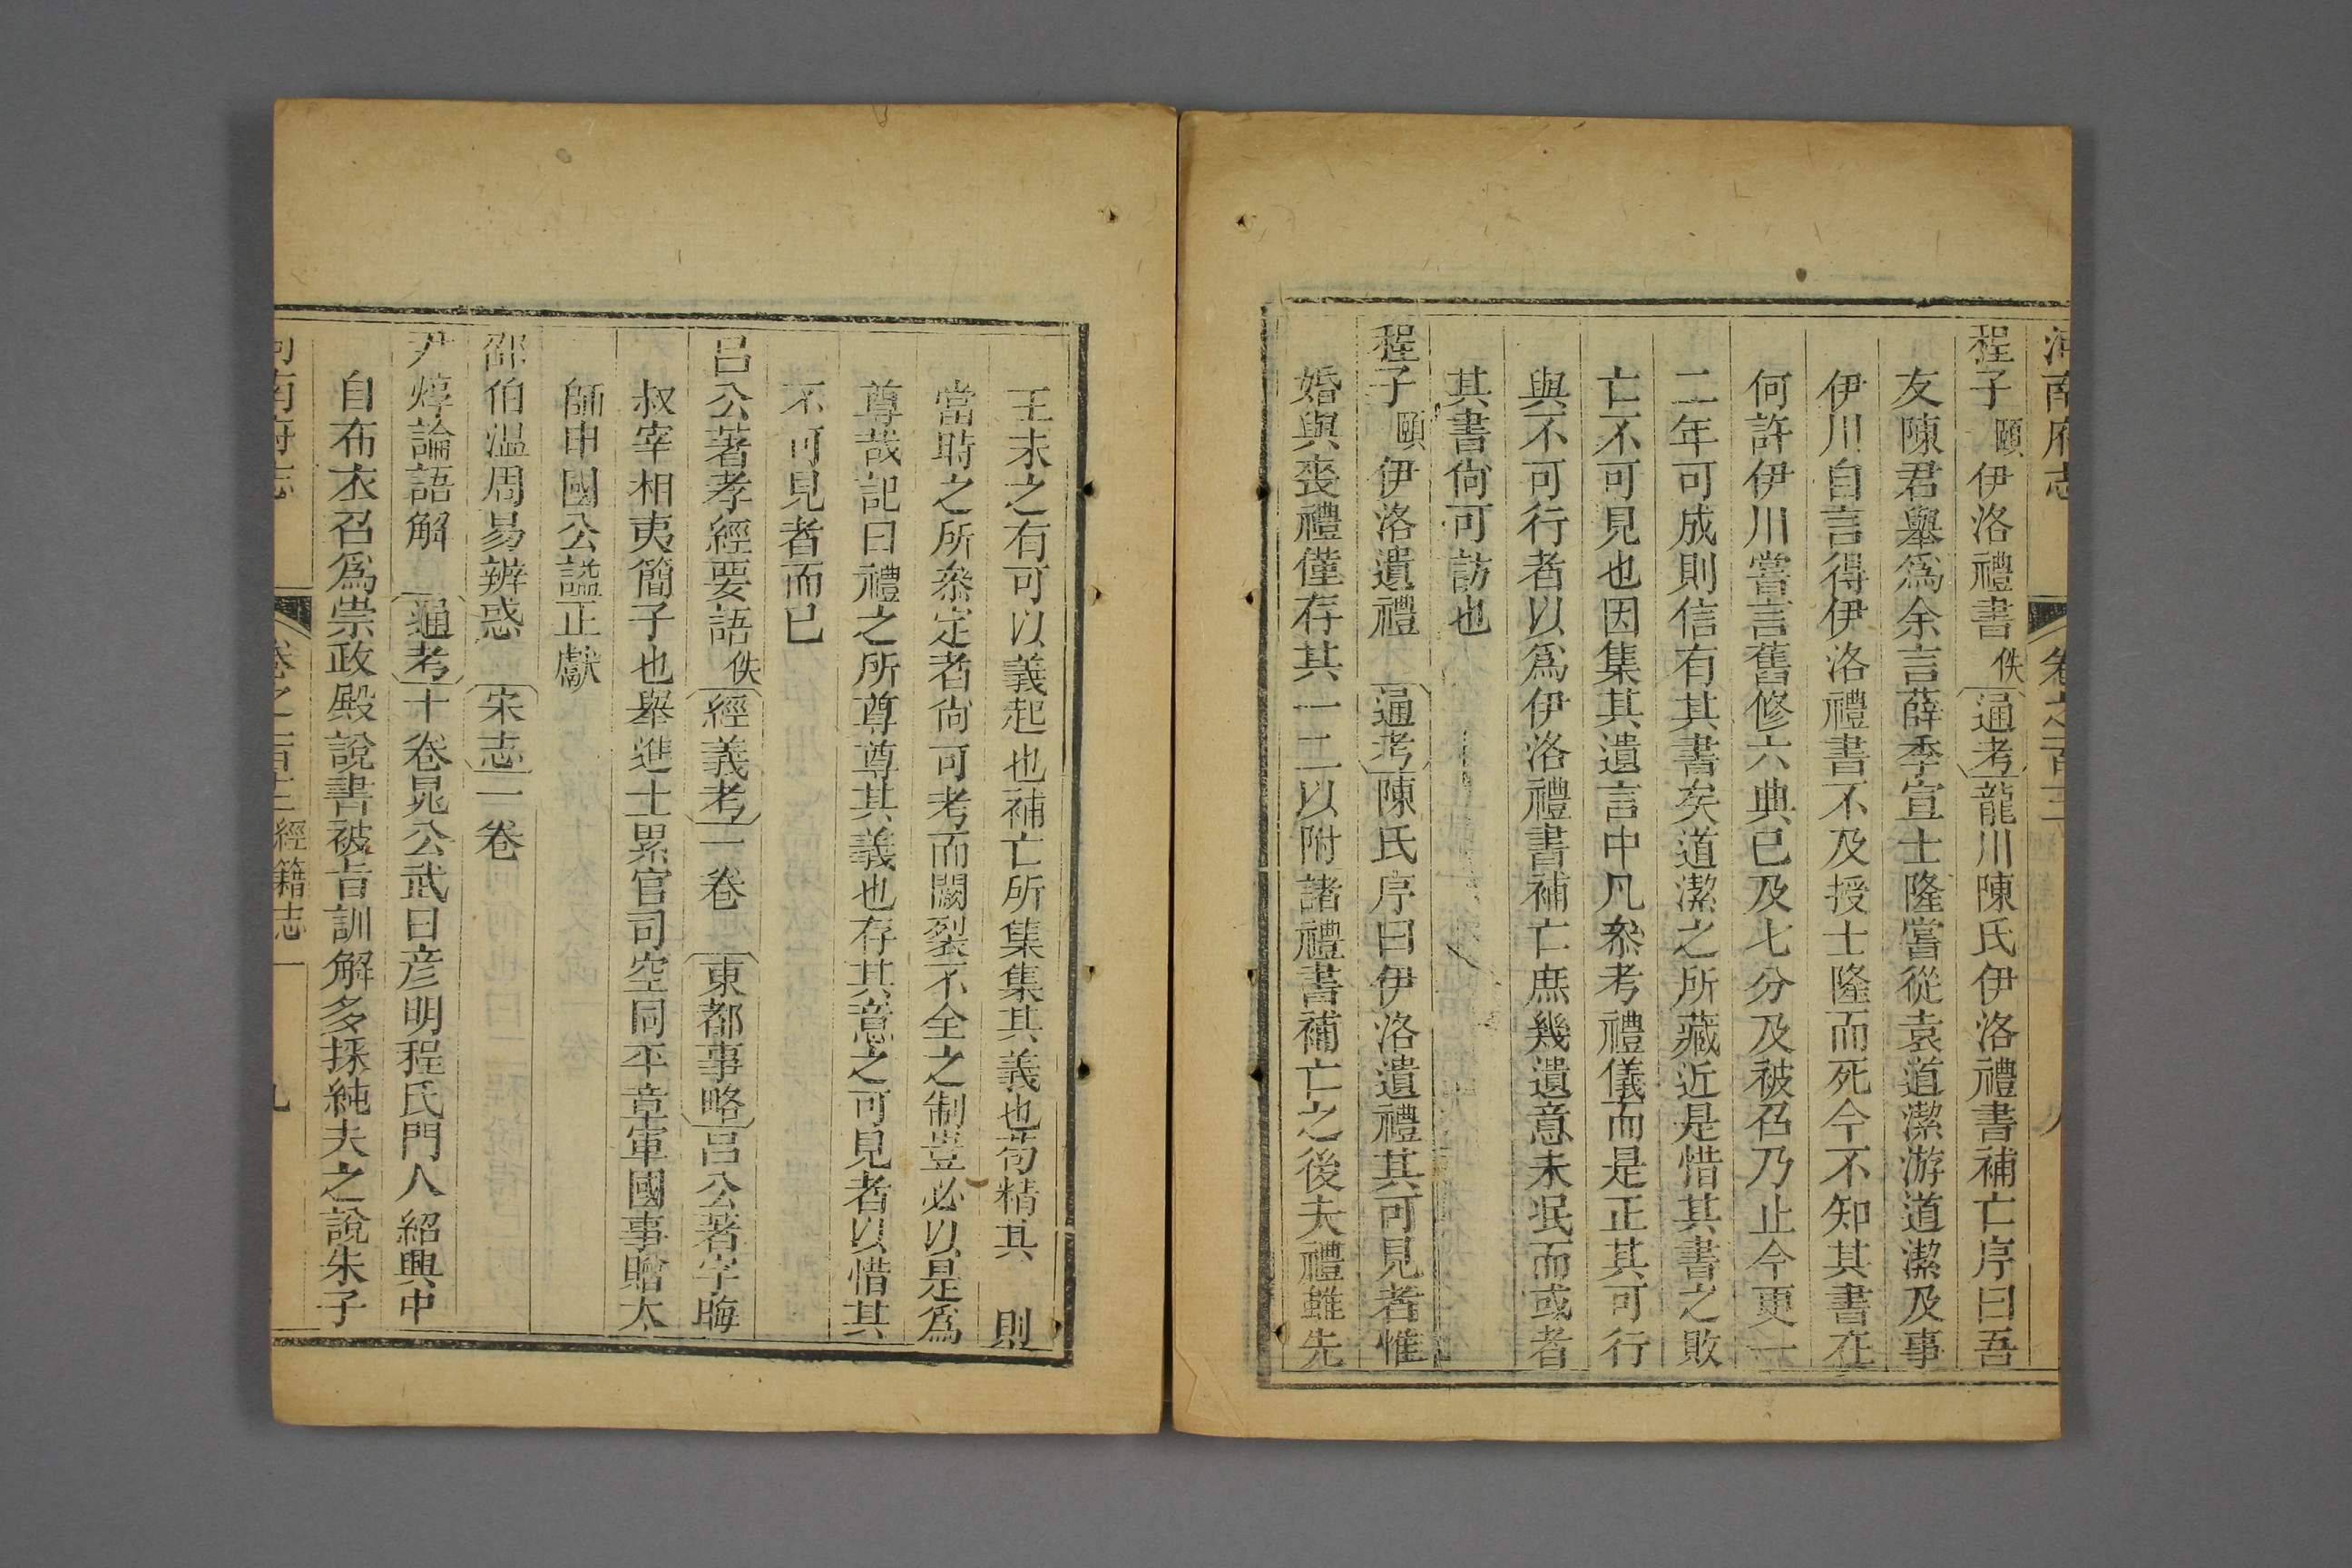 河南府志 卷之百三 八
程子頤伊洛禮書佚通考龍川陳氏伊洛禮書補亡序曰吾
友陳君舉爲余言薛季宣士隆嘗從袁道潔游道潔及事
伊川自言得伊洛禮書不及授士隆而死今不知其書在
何許伊川嘗言舊修六典已及七分及被召乃止今更一
二年可成則信有其書矣道潔之所藏近是惜其書之散
亡不可見也因集其遺言中凡叅考禮儀而是正其可行
與不可行者以爲伊洛禮書補亡庶幾遺意未泯而或者
其書尙可訪也
程子頤伊洛遺禮 通考陳氏序曰伊洛遺禮其可見者惟
婚與喪禮僅存其一二以附諸禮書補亡之後夫禮雖先
王未之有可以義起也補亡所集集其義也苟精其 則
當時之所叅定者尙可考而闕裂不全之制豈必以是爲
尊哉記曰禮之所尊尊其義也存其意之可見者以惜其
不可見者而已
呂公著孝經要語佚經義考一卷 東都事略呂公著字晦
叔宰相夷簡子也舉進士累官司空同平章軍國事贈太
師申國公謚正獻
邵伯溫周易辨惑 宋志一卷
尹焞論語解 通考十卷晁公武曰彥明程氏門人紹興中
自布衣召爲崇政殿說書被旨訓解多採純夫之說朱子
河南府志 卷之一百三 經籍志一 九